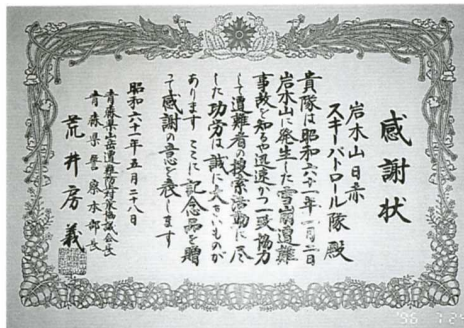 感謝状
岩木山日赤
スキーパトロール隊 殿
貴隊は昭和六十一年一月二日
岩木山に発生した雪崩遭難
事故を知るや迅速かつ一致協力
して遭難者の捜索活動に尽
した功労は誠に大きいものが
あります ここに記念品を贈
って感謝の意を表します
昭和六十一年五月二十八日
青森県山岳遭難防止対策協議会長
青森県警察本部長
荒井房義